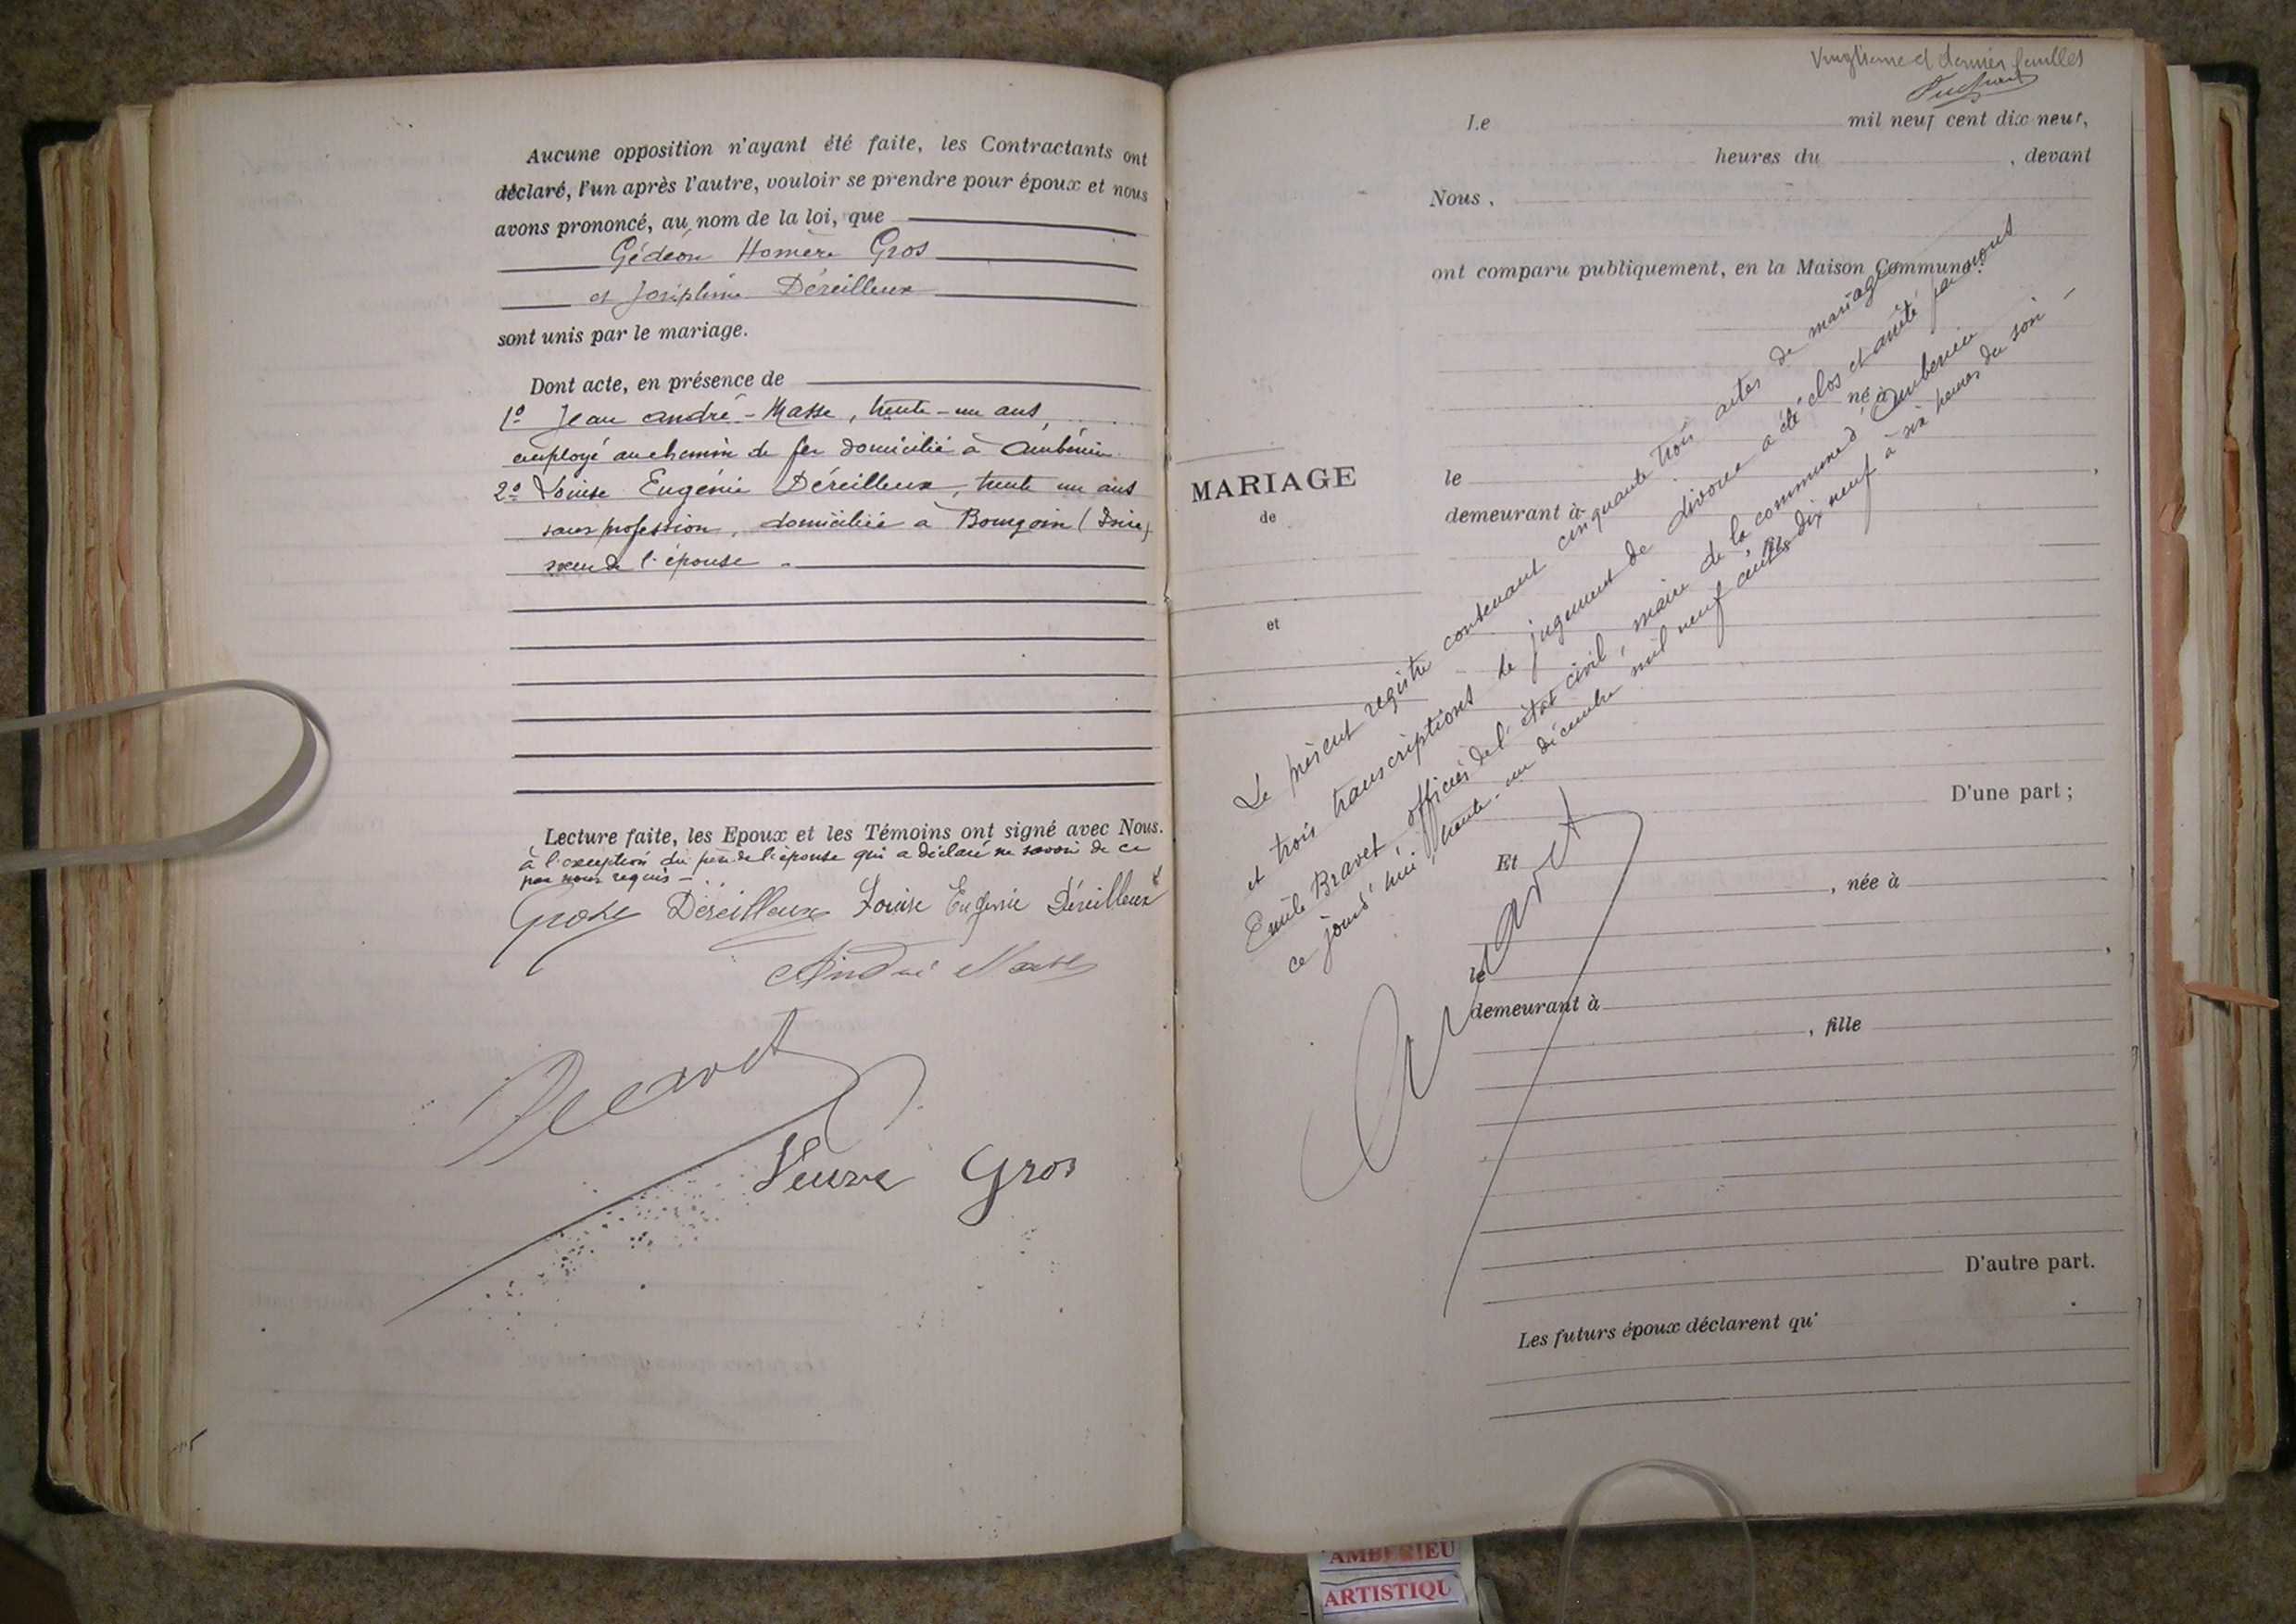 Aucune opposition n'ayant été faite, les Contractants ont
déclaré, l'un après l'autre, vouloir se prendre pour époux et nous
avons prononcé, au nom de la loi, que
Gédéon Homère Gros
et Joséphine Déreilleux
sont unis par le mariage.
Dont acte, en présence de
1º Jean André-Masse, trente-un ans,
employé au chemin de fer domicilié à Ambérieu.
2º Louise Eugénie Déreilleux, trente un ans
sans profession, domiciliée à Bourgoin (Isère)
sœur de l'épouse.
Lecture faite, les Epoux et les Témoins ont signé avec Nous.
à l'exception du père de l'épouse qui a déclaré ne savoir de ce
par nous requis
Gros Déreilleux Louise Eugenie Déreilleux
André Masse
Bravet
Veuve Gros
Vingtième et dernier feuillet
Le mil neuf cent dix neuf,
heures du , devant
Nous,
ont comparu publiquement, en la Maison Commune:
né à
MARIAGE
le
de
demeurant à
, fils
et
Le présent registre contenant cinquante trois actes de mariage
et trois transcriptions de jugement de divorce a été clos et arrêté par nous
Emile Bravet, officier de l'état civil, maire de la commune d'Ambérieu
ce jourd'hui trente-un décembre mil neuf cent dix neuf à six heures du soir
Bravet
D'une part;
Et
, née à
le
demeurant à
, fille
D'autre part.
Les futurs époux déclarent qu'
AMBERIEU
ARTISTIQU